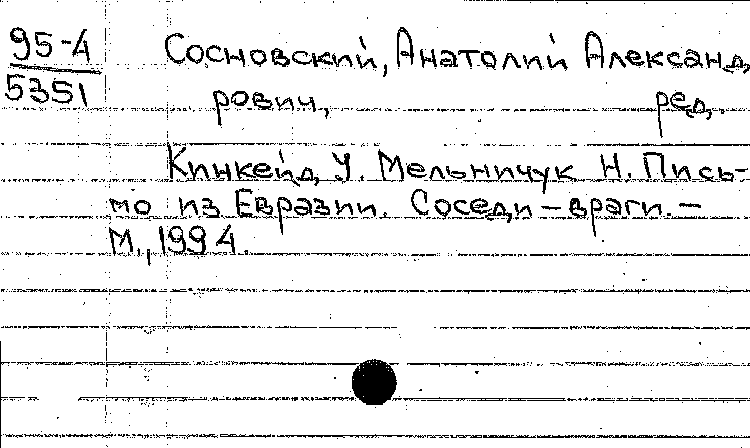 95-4
5351
Сосновский, Анатолий Александ
рович, ред.
Кинкейд У. Мельничук Н. Пись-
мо из Евразии. Соседи – враги. –
М., 1994.